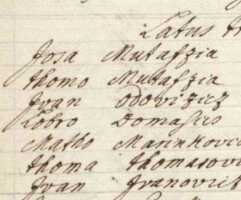 Latus
Josa Mutafzia
Thomo Mutafzia
Jvan Odovizicz
Lobro Domasics
Matho
Thoma Thomasovi
Jvan Jvanovich